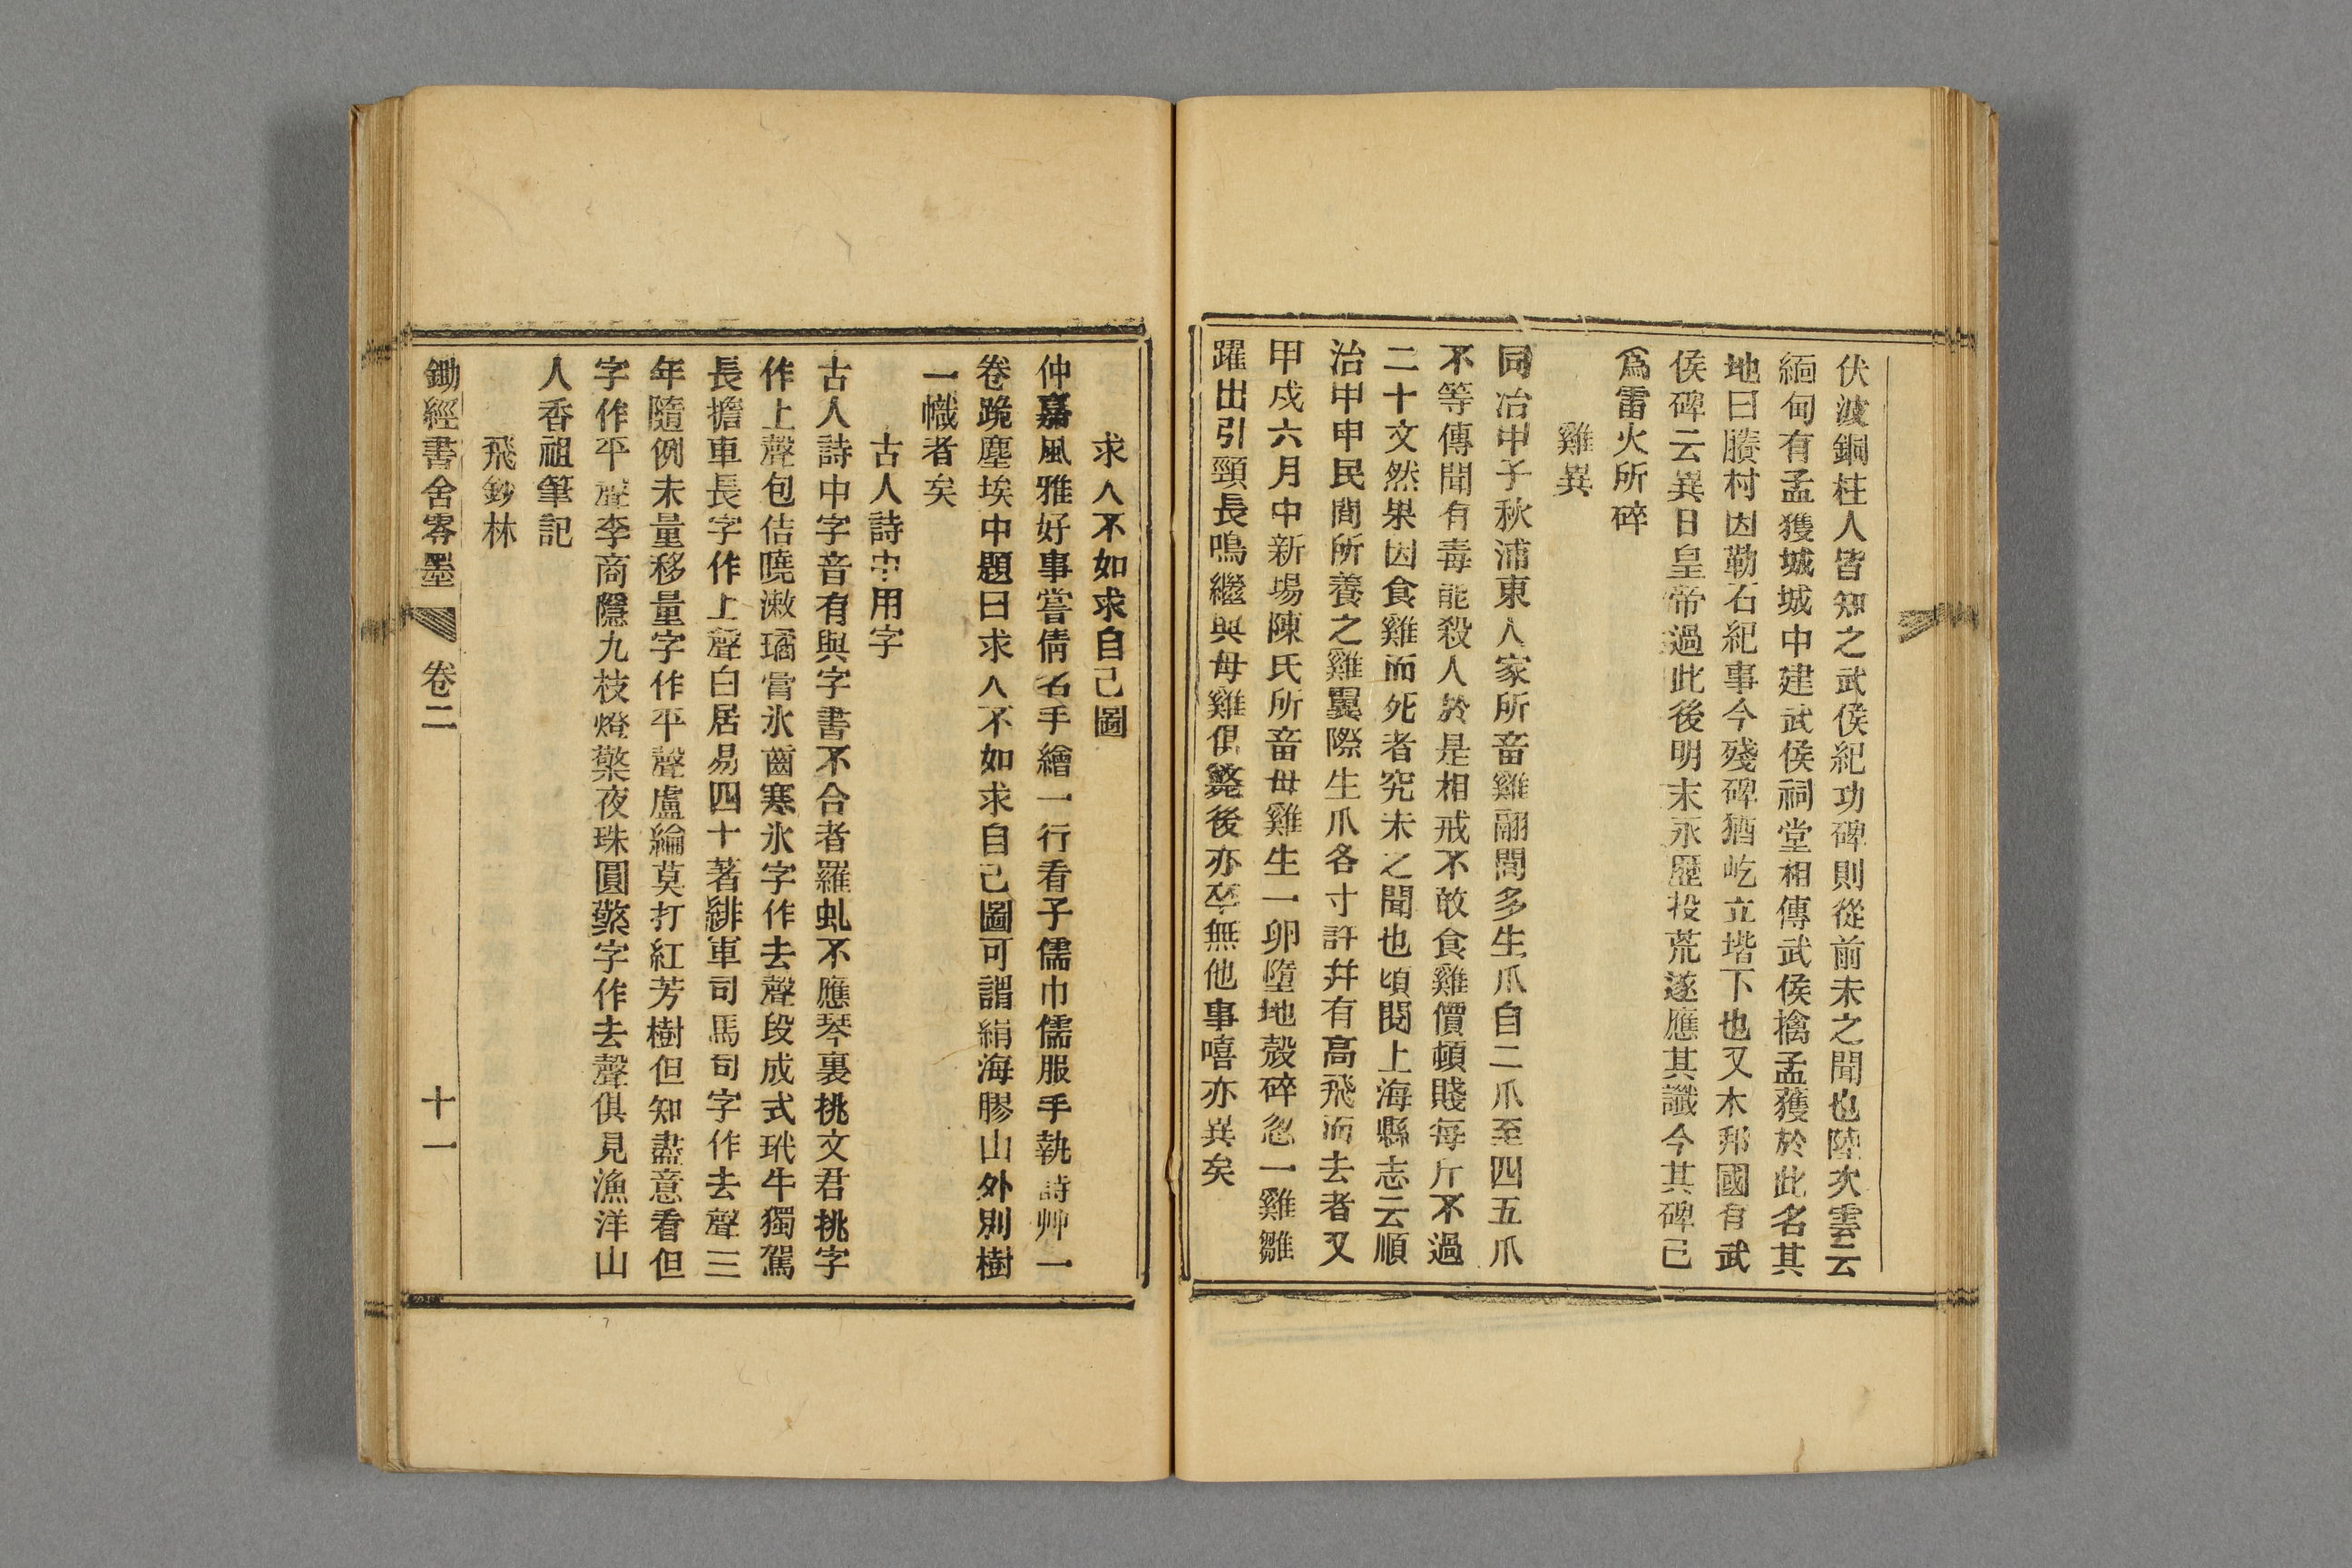 伏波銅柱人皆知之武侯紀功碑則從前未之聞也陸次雲云
緬甸有孟獲城城中建武侯祠堂相傳武侯擒孟獲於此名其
地曰賸村因勒石紀事今殘碑猶屹立堦下也又木邦國有武
侯碑云異日皇帝過此後明末永歷投荒遂應其讖今其碑已
爲雷火所碎
雞異
同治甲子秋浦東人家所畜雞翮間多生爪自二爪至四五爪
不等傳聞有毒能殺人於是相戒不敢食雞價頓賤每斤不過
二十文然果因食雞而死者究未之聞也頃閱上海縣志云順
治甲申民間所養之雞翼際生爪各寸許幷有高飛而去者又
甲戌六月中新場陳氏所畜母雞生一卵墮地殼碎忽一雞雛
躍出引頸長鳴繼與母雞俱斃後亦卒無他事嘻亦異矣
求人不如求自己圖
仲嘉風雅好事嘗倩名手繪一行看子儒巾儒服手執詩艸一
卷跪塵埃中題曰求人不如求自己圖可謂絹海膠山外別樹
一幟者矣
古人詩中用字
古人詩中字音有與字書不合者羅虬不應琴裏挑文君挑字
作上聲包佶曉漱瓊膏氷齒寒氷字作去聲段成式玳牛獨駕
長擔車長字作上聲白居易四十著緋軍司馬司字作去聲三
年隨例未量移量字作平聲盧綸莫打紅芳樹但知盡意看但
字作平聲李商隱九枝燈檠夜珠圓檠字作去聲俱見漁洋山
人香祖筆記
飛鈔林
鋤經書舍零墨 卷二 十一